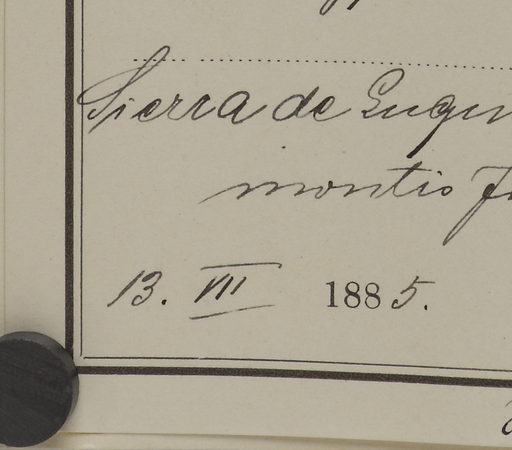 Sierra de Luqu
montis
13. VII 1885.